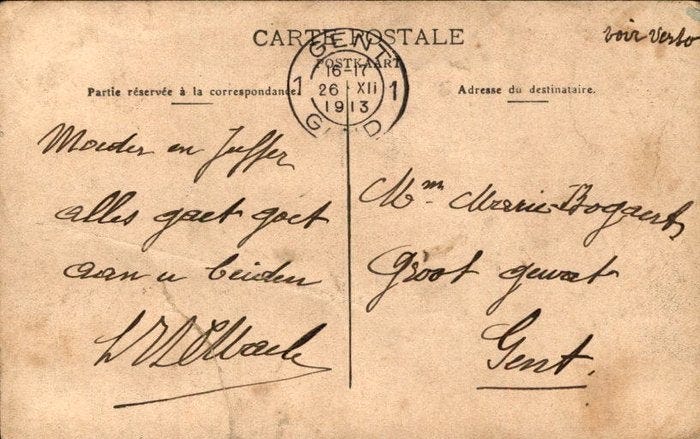 CARTE POSTALE
POSTKAART
voir verso
GENT
1 16-17 1
26 XII
1913
GAND
Partie réservée à la correspondance.
Adresse du destinataire.
Moeder en Juffer
alles gaet goet
aan u beiden
Mme Marie Bogaert
Groot gewat
Gent.